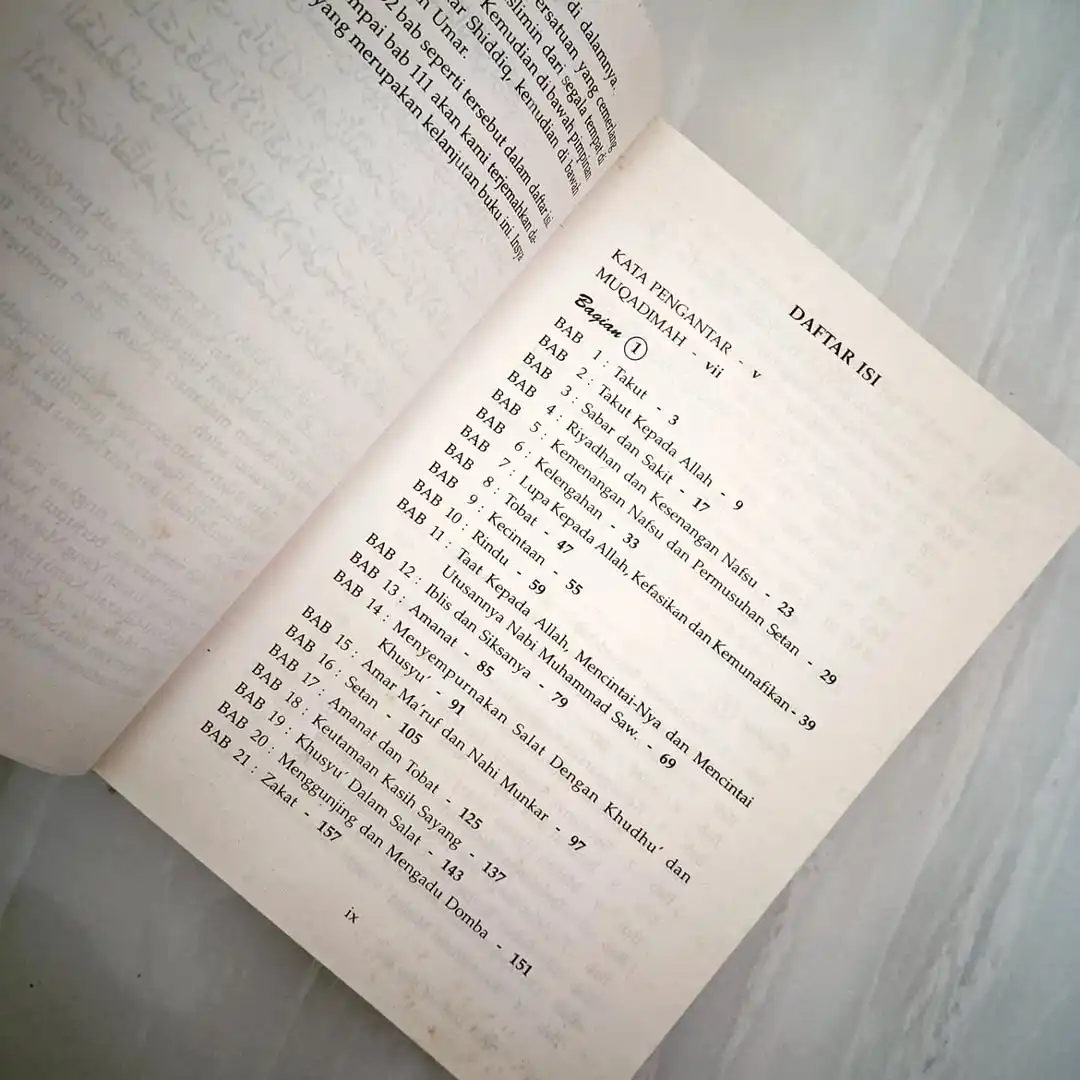 di dalamnya.
ersatuan yang cemerlang
slimin dari segala tempat di
Kemudian di bawah pimpinan
ar Shiddiq, kemudian di bawah
n Umar.
2 bab seperti tersebut dalam daftar isi
mpai bab 111 akan kami terjemahkan da-
yang merupakan kelanjutan buku ini. Insya
DAFTAR ISI
KATA PENGANTAR - v
MUQADIMAH - vii
Bagian 1
BAB 1 : Takut - 3
BAB 2 : Takut Kepada Allah - 9
BAB 3 : Sabar dan Sakit - 17
BAB 4 : Riyadhan dan Kesenangan Nafsu - 23
BAB 5 : Kemenangan Nafsu dan Permusuhan Setan - 29
BAB 6 : Kelengahan - 33
BAB 7 : Lupa Kepada Allah, Kefasikan dan Kemunafikan - 39
BAB 8 : Tobat - 47
BAB 9 : Kecintaan - 55
BAB 10 : Rindu - 59
BAB 11 : Taat Kepada Allah, Mencintai-Nya dan Mencintai
Utusannya Nabi Muhammad Saw. - 69
BAB 12 : Iblis dan Siksanya - 79
BAB 13 : Amanat - 85
BAB 14 : Menyempurnakan Salat Dengan Khudhu' dan
Khusyu' - 91
BAB 15 : Amar Ma'ruf dan Nahi Munkar - 97
BAB 16 : Setan - 105
BAB 17 : Amanat dan Tobat - 125
BAB 18 : Keutamaan Kasih Sayang - 137
BAB 19 : Khusyu' Dalam Salat - 143
BAB 20 : Menggunjing dan Mengadu Domba - 151
BAB 21 : Zakat - 157
ix